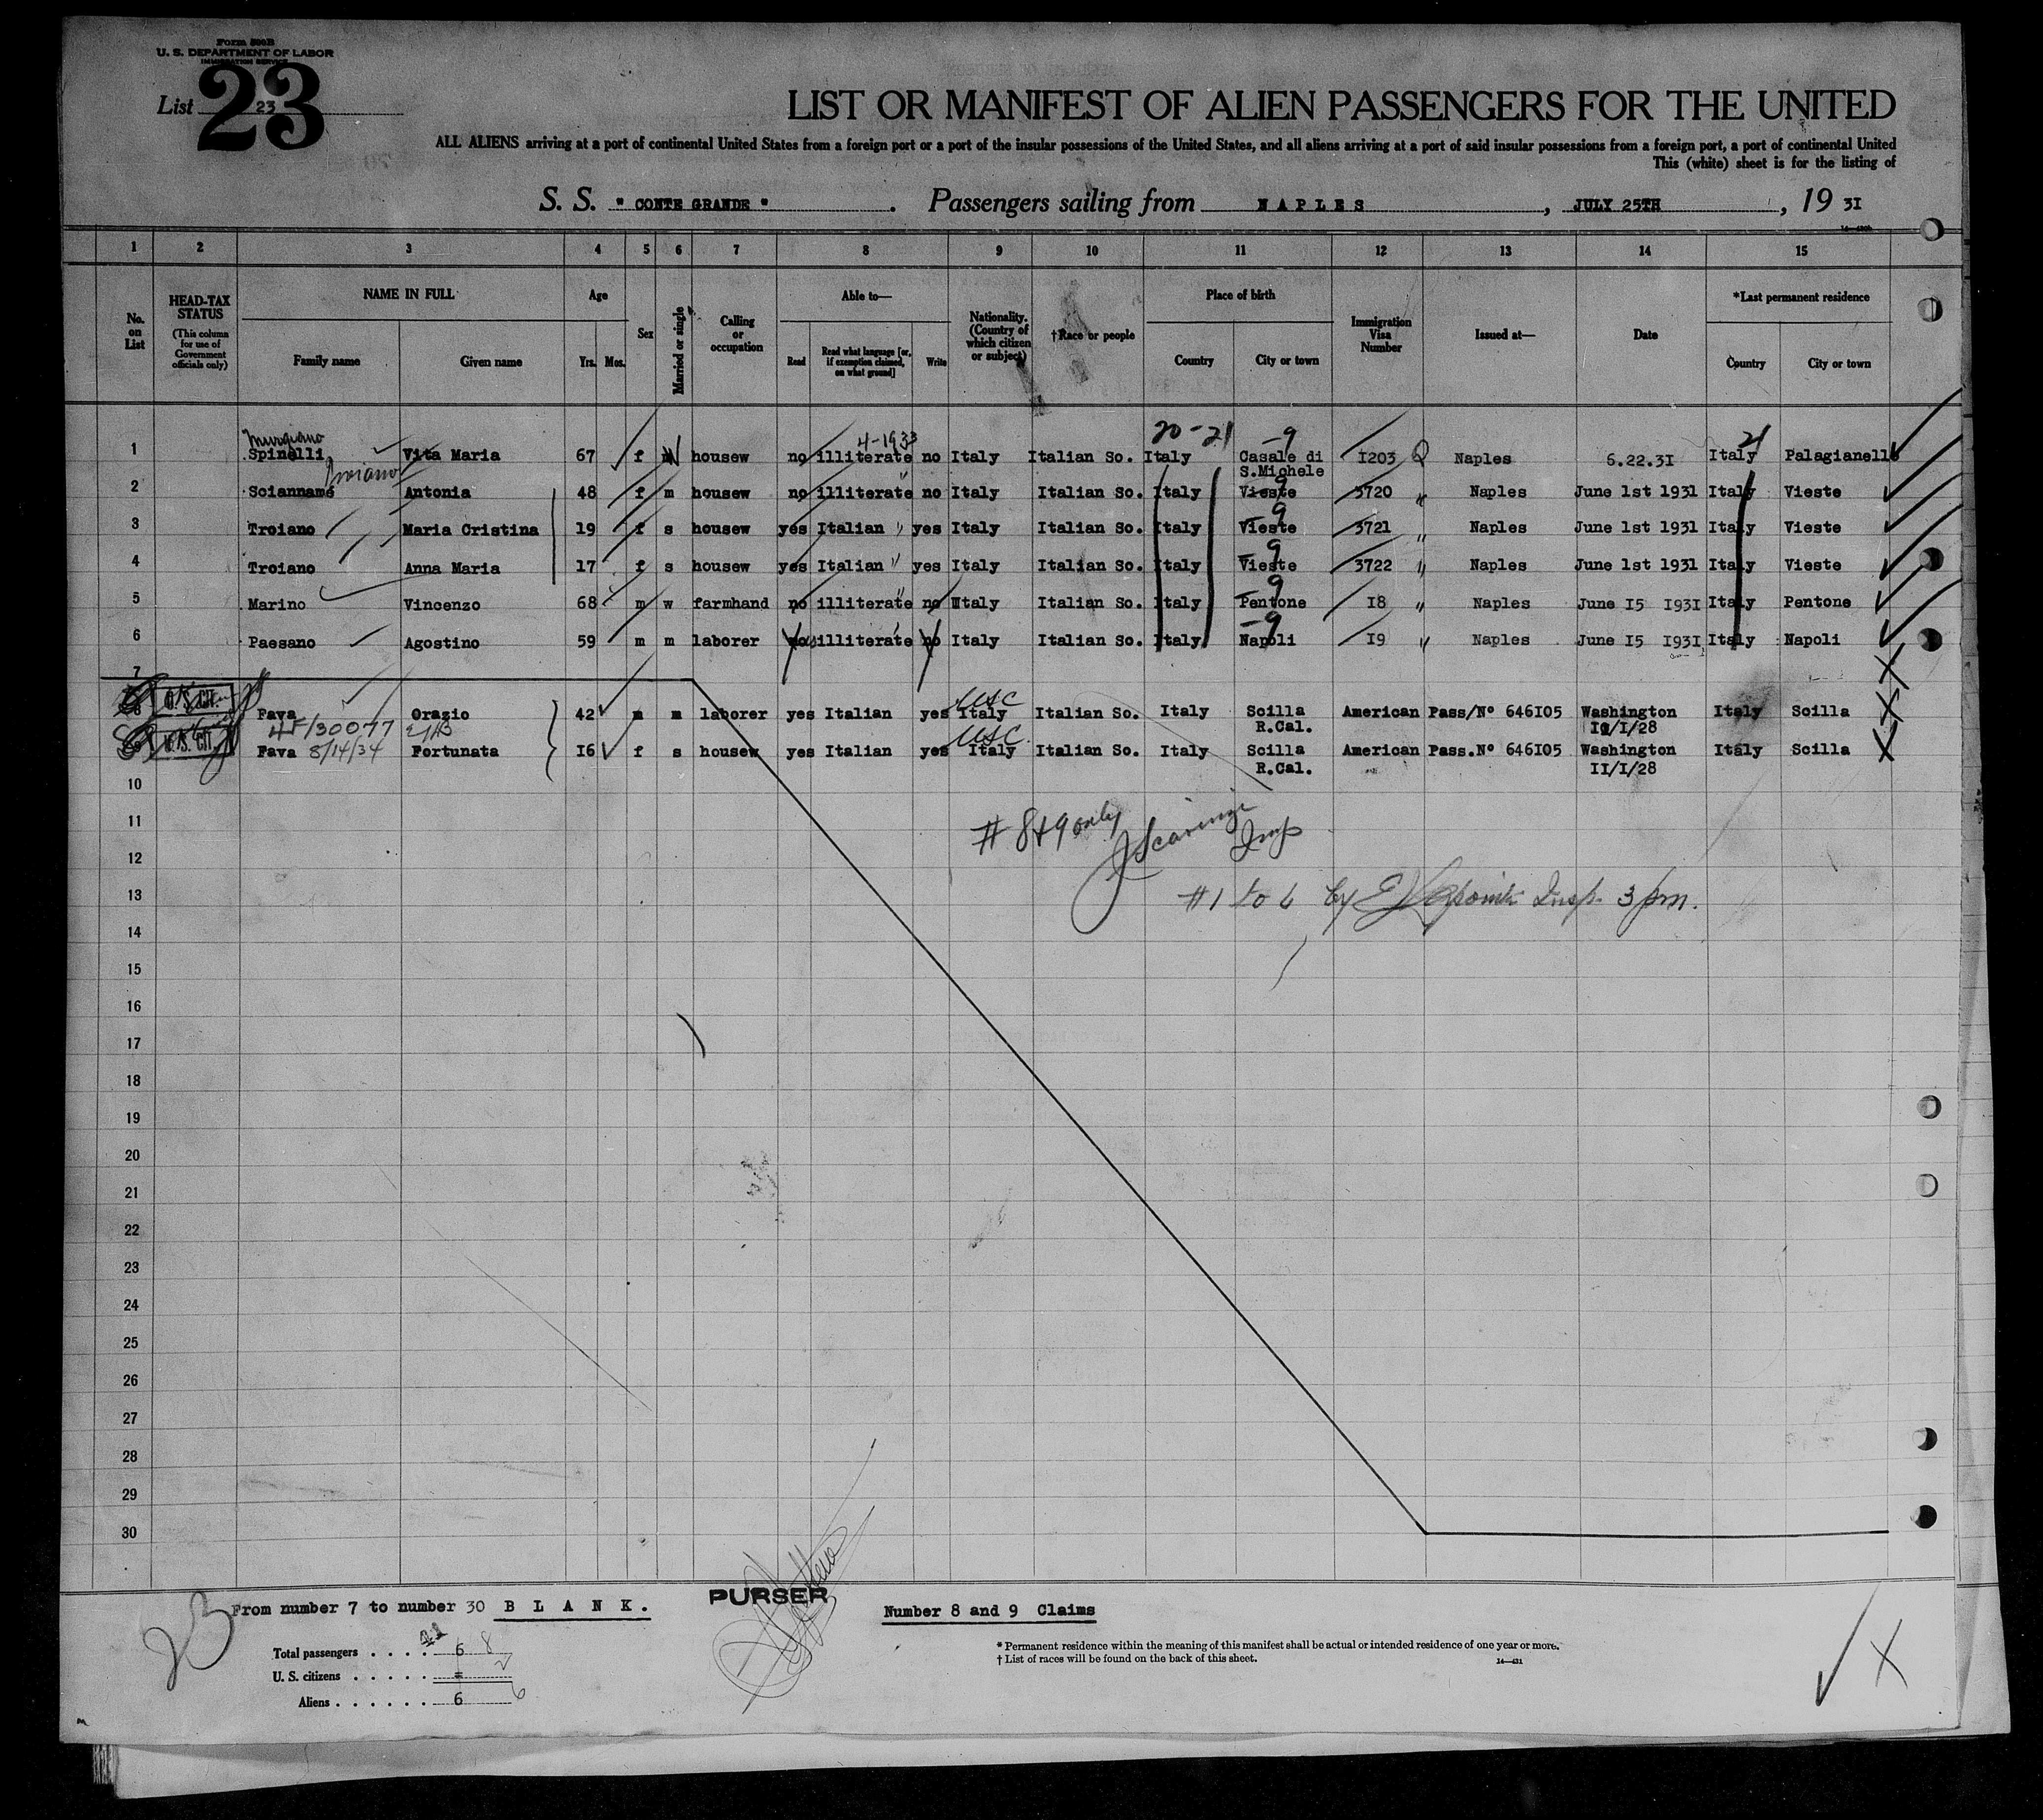 Form 500B
U. S. DEPARTMENT OF LABOR
IMMIGRATION SERVICE
23
List 23
LIST OR MANIFEST OF ALIEN PASSENGERS FOR THE UNITED
ALL ALIENS arriving at a port of continental United States from a foreign port or a port of the insular possessions of the United States, and all aliens arriving at a port of said insular possessions from a foreign port, a port of continental United
This (white) sheet is for the listing of
S. S. " CONTE GRANDE " . Passengers sailing from NAPLES , JULY 25TH , 19 3I
1 2 3 4 5 6 7 8 9 10 11 12 13 14 15
No. on List
HEAD-TAX STATUS (This column for use of Government officials only)
NAME IN FULL
Family name Given name
Age
Yrs. Mos.
Sex
Married or single
Calling or occupation
Able to—
Read Read what language [or, if exemption claimed, on what ground] Write
Nationality. (Country of which citizen or subject)
†Race or people
Place of birth
Country City or town
Immigration Visa Number
Issued at—
Date
*Last permanent residence
Country City or town
Murgiano 4-1933 20-21 -9 21
1 Spinelli Vita Maria 67 f housew no illiterate no Italy Italian So. Italy Casale di S.Michele I203 Naples 6.22.3I Italy Palagianello
Troiano
2 Scianname Antonia 48 f m housew no illiterate " no Italy Italian So. Italy Vieste 9 3720 " Naples June 1st 1931 Italy Vieste
3 Troiano Maria Cristina 19 f s housew yes Italian " yes Italy Italian So. Italy Vieste 9 3721 " Naples June 1st 1931 Italy Vieste
4 Troiano Anna Maria 17 f s housew yes Italian " yes Italy Italian So. Italy Vieste 9 3722 " Naples June 1st 1931 Italy Vieste
5 Marino Vincenzo 68 m w farmhand no illiterate " no Italy Italian So. Italy Pentone 9 I8 " Naples June I5 I93I Italy Pentone
6 Paesano Agostino 59 m m laborer no illiterate no Italy Italian So. Italy Napoli -9 I9 " Naples June I5 I93I Italy Napoli
7
U.S. CIT. USC
8 Fava Orazio 42 m m laborer yes Italian yes Italy Italian So. Italy Scilla R.Cal. American Pass/Nº 646I05 Washington II/I/28 Italy Scilla
4F/30077
U.S. CIT. USC
9 Fava 8/14/34 Fortunata I6 f s housew yes Italian yes Italy Italian So. Italy Scilla R.Cal. American Pass.Nº 646I05 Washington II/I/28 Italy Scilla
10
11
# 8&9 only
Insp
12
13 #1 to 6 by Insp. 3 pm.
14
15
16
17
18
19
20
21
22
23
24
25
26
27
28
29
30
23
From number 7 to number 30 BLANK.
PURSER
Number 8 and 9 Claims
Total passengers . . . . 6 8
U. S. citizens . . . . . = 2
Aliens . . . . . . 6 6
* Permanent residence within the meaning of this manifest shall be actual or intended residence of one year or more.
† List of races will be found on the back of this sheet.
14—431